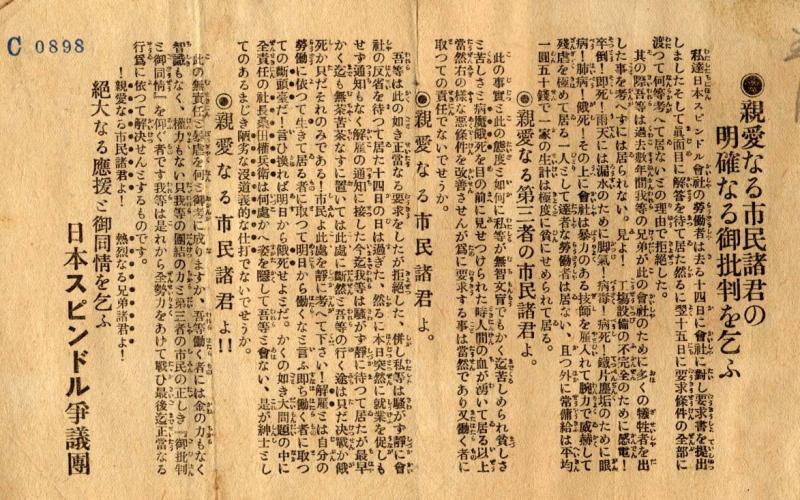 ◉親愛なる市民諸君の
明確なる御批判を乞ふ
私達日本スピンドル會社の勞働者は去る十四日に會社に對し要求書を提出
しましたそして眞面目に解答を待て居た然るに翌十五日に要求條件の全部に
渡つて何等考へて居ないとの理由で拒絶した。
其の際吾等は過去數年間我等の兄弟が此の會社のために多くの犠牲者を出
した事を考へずには居られない。見よ!工場設備の不完全のために感電!
卒倒!即死!雨天には漏水のために脚氣!病毒!病死!鐵片塵垢のために眼
病!肺病!餓死!その上に會社は暴力のある技師を雇入れて腕力で威赫して
殘虐を極めて居る一人として達者な勞働者は居ない、且つ外に常傭給は平均
一圓五十錢で一家の生計は極度に貧にせめられて居る。
◉親愛なる第三者の市民諸君よ。
此の事實と此の態度と如何に私等が無智文盲でもかく迄苦しめられ貧しさ
と苦しさと病魔餓死を目の前に見せつけられた時人間の血が湧いて居る以上
當然右の樣な惡條件を改善させんが爲に要求する事は當然であり又働く者に
取つての責任でないでせうか。
◉親愛なる市民諸君よ。
吾等は此の如き正當なる要求をしたが拒絶した、併し私等は騒がず靜に會
社の反省を待つて居た十四日の日は過ぎた、然るに本日突然に就業を促しも
せず通知もなく解雇の通知に接した今迄我等は騒がず靜に待つて居たが最早
かく迄も無茶苦茶なすに置いては此處に斷然と吾等の行く途は只だ決戰か餓
死か只だそれのみである!市民よ此處を靜に考へて下さい!解雇とは自分の
勞働に依つて生きて居る者に取つて明日から働くなと言ふ即ち働く者に取つ
ての斷頭臺だ!言ひ換れば明日から餓死せよとだ。かくの如き大問題の中に
全責任の社長 田權兵衛は何處かへ姿を隱して吾等と會ない、是が紳士とし
てのあるまじき陋劣な沒道義的な仕打でないでせうか。
◉親愛なる市民諸君よ!!
此の無責任と殘虐を何と御考に成りますか、吾等働く者には金の力もなく
智識もなく、權力もない只我等の團結の力と第三者の市民の正しき『御批判
と御同情』を仰ぐ者です我等は是れから全勢力をあげて戰ひ最後迄正當なる
行爲に依つて解決せんとするものです。
!親愛なる市民諸君よ!　熱烈なる兄弟諸君よ!
絕大なる應援と御同情を乞ふ
日本スピンドル爭議團
C 0898